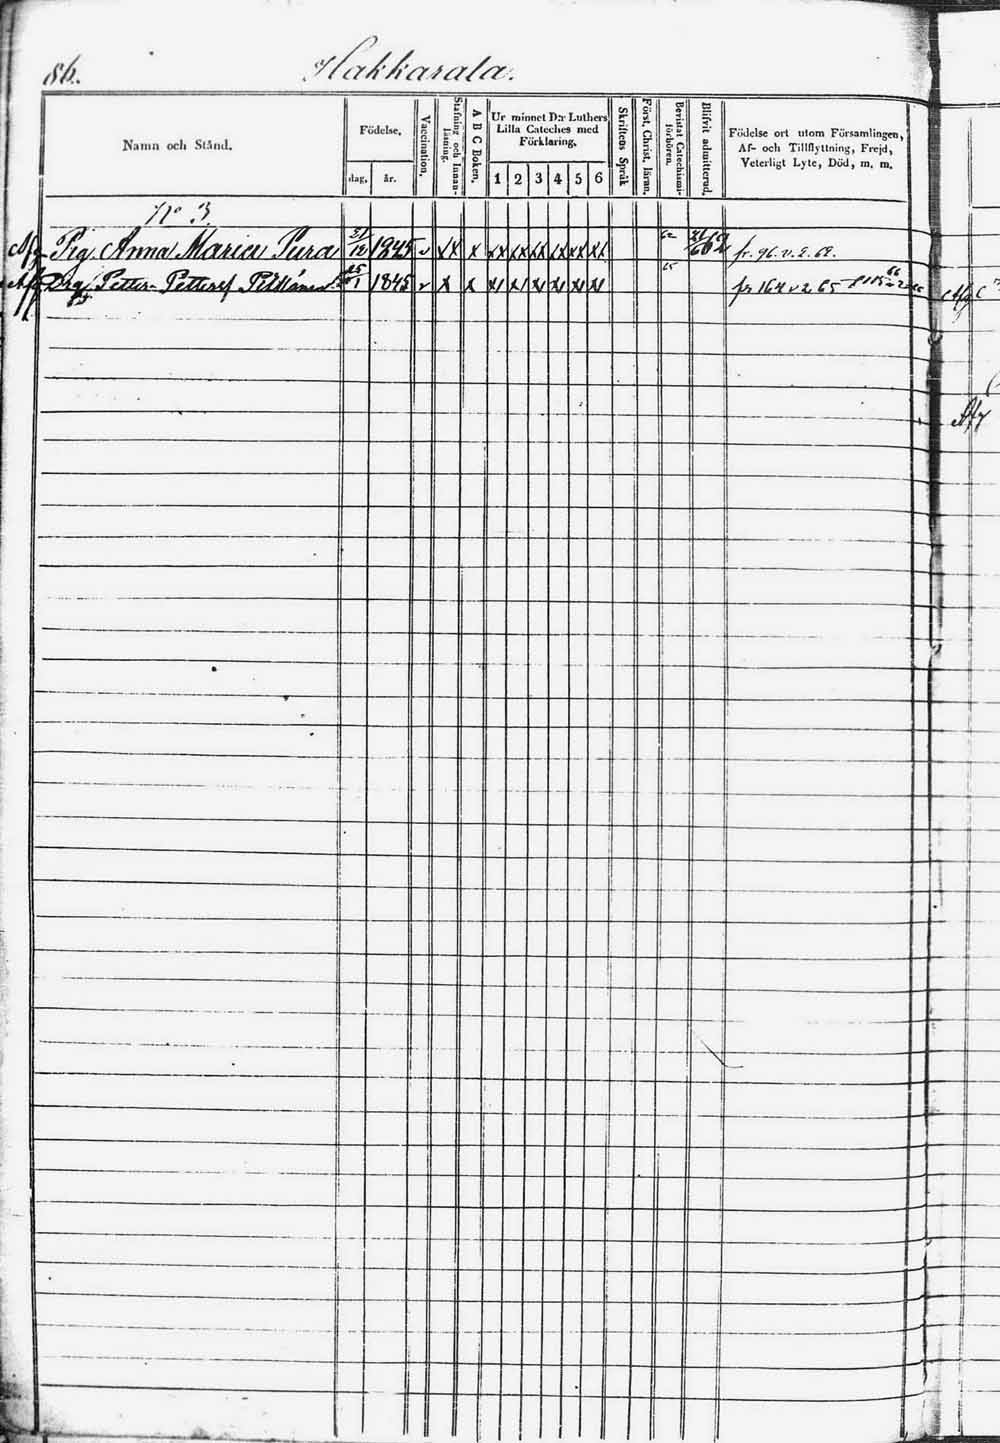 86. Hakkarala.
Namn och Stånd.
Födelse,
dag. år.
Vaccination.
Stafning och Innanläsning.
A B C Boken.
Ur minnet D:r Luthers
Lilla Cateches med
Förklaring,
1 2 3 4 5 6
Skriftens Språk
Först. Christ. läran.
Bevistat Catechismiförhören.
Blifvit admitterad.
Födelse ort utom Församlingen,
Af- och Tillflyttning, Frejd,
Veterligt Lyte, Död, m. m.
No 3.
Afg Pig Anna Maria Pura 31/12 1845 v x x x x x x x x x x x x x x x x fr. 96. v. 2. 62.
Afg Drg Petter Petterss 1845 v x x x x x x x x fr 164 v 2 65
Afg
Afg